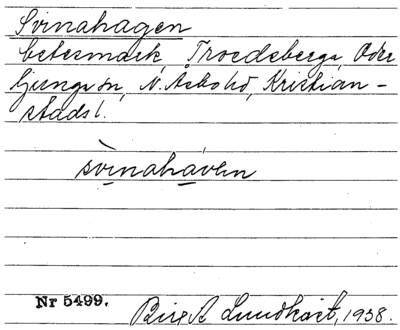 Svinahagen
betesmark, Troedsberga, Ode
ljunga sn, N. Åsbo hd, Kristian-
stads l.
svìnahaven
Nr 5499.
Birgit Lundkvist, 1938.